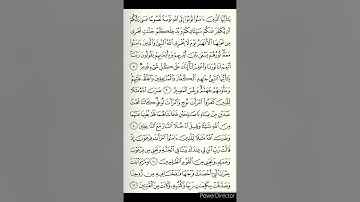 يَٰٓأَيُّهَا ٱلَّذِينَ ءَامَنُوا۟ تُوبُوٓا۟ إِلَى ٱللَّهِ تَوْبَةً نَّصُوحًا عَسَىٰ رَبُّكُمْ
أَن يُكَفِّرَ عَنكُمْ سَيِّـَٔاتِكُمْ وَيُدْخِلَكُمْ جَنَّٰتٍ تَجْرِى
مِن تَحْتِهَا ٱلْأَنْهَٰرُ يَوْمَ لَا يُخْزِى ٱللَّهُ ٱلنَّبِىَّ وَٱلَّذِينَ ءَامَنُوا۟
مَعَهُۥ نُورُهُمْ يَسْعَىٰ بَيْنَ أَيْدِيهِمْ وَبِأَيْمَٰنِهِمْ يَقُولُونَ رَبَّنَآ
أَتْمِمْ لَنَا نُورَنَا وَٱغْفِرْ لَنَآ إِنَّكَ عَلَىٰ كُلِّ شَىْءٍ قَدِيرٌ ٨
يَٰٓأَيُّهَا ٱلنَّبِىُّ جَٰهِدِ ٱلْكُفَّارَ وَٱلْمُنَٰفِقِينَ وَٱغْلُظْ عَلَيْهِمْ
وَمَأْوَىٰهُمْ جَهَنَّمُ وَبِئْسَ ٱلْمَصِيرُ ٩ ضَرَبَ ٱللَّهُ مَثَلًا
لِّلَّذِينَ كَفَرُوا۟ ٱمْرَأَتَ نُوحٍ وَٱمْرَأَتَ لُوطٍ كَانَتَا تَحْتَ
عَبْدَيْنِ مِنْ عِبَادِنَا صَٰلِحَيْنِ فَخَانَتَاهُمَا فَلَمْ يُغْنِيَا عَنْهُمَا
مِنَ ٱللَّهِ شَيْـًٔا وَقِيلَ ٱدْخُلَا ٱلنَّارَ مَعَ ٱلدَّٰخِلِينَ ١٠
وَضَرَبَ ٱللَّهُ مَثَلًا لِّلَّذِينَ ءَامَنُوا۟ ٱمْرَأَتَ فِرْعَوْنَ إِذْ
قَالَتْ رَبِّ ٱبْنِ لِى عِندَكَ بَيْتًا فِى ٱلْجَنَّةِ وَنَجِّنِى مِن فِرْعَوْنَ
وَعَمَلِهِۦ وَنَجِّنِى مِنَ ٱلْقَوْمِ ٱلظَّٰلِمِينَ ١١ وَمَرْيَمَ ٱبْنَتَ
عِمْرَٰنَ ٱلَّتِىٓ أَحْصَنَتْ فَرْجَهَا فَنَفَخْنَا فِيهِ مِن رُّوحِنَا
وَصَدَّقَتْ بِكَلِمَٰتِ رَبِّهَا وَكُتُبِهِۦ وَكَانَتْ مِنَ ٱلْقَٰنِتِينَ ١٢
PowerDirector